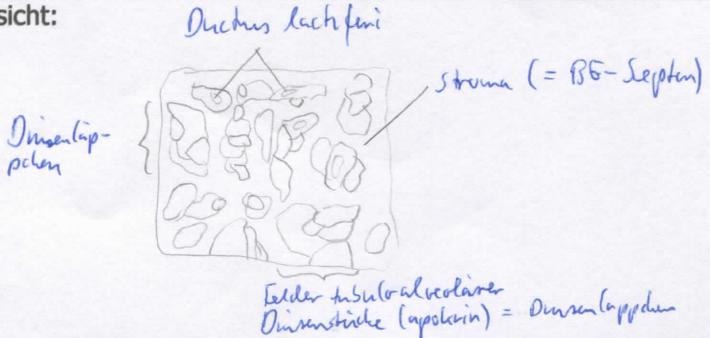 sicht:
Ductus lactiferi
Stroma (= BG-Septen)
Drüsenläp-
pchen
Felder tubuloalveolärer
Drüsenstücke (apokrin) = Drüsenläppchen